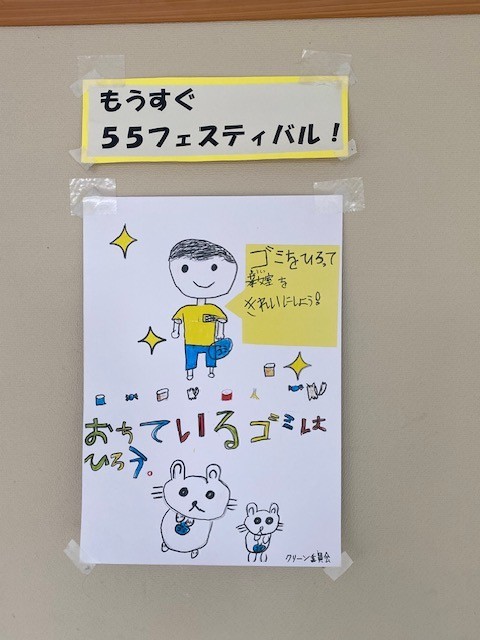 もうすぐ
55フェスティバル！
ゴミをひろって
教室を
きれいにしよう！
おちているゴミは
ひろう。
クリーン委員会